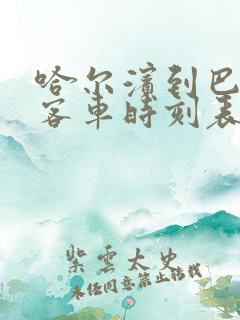 哈尔滨到巴
客车时刻表
紫雲太史
未经同意禁止转载